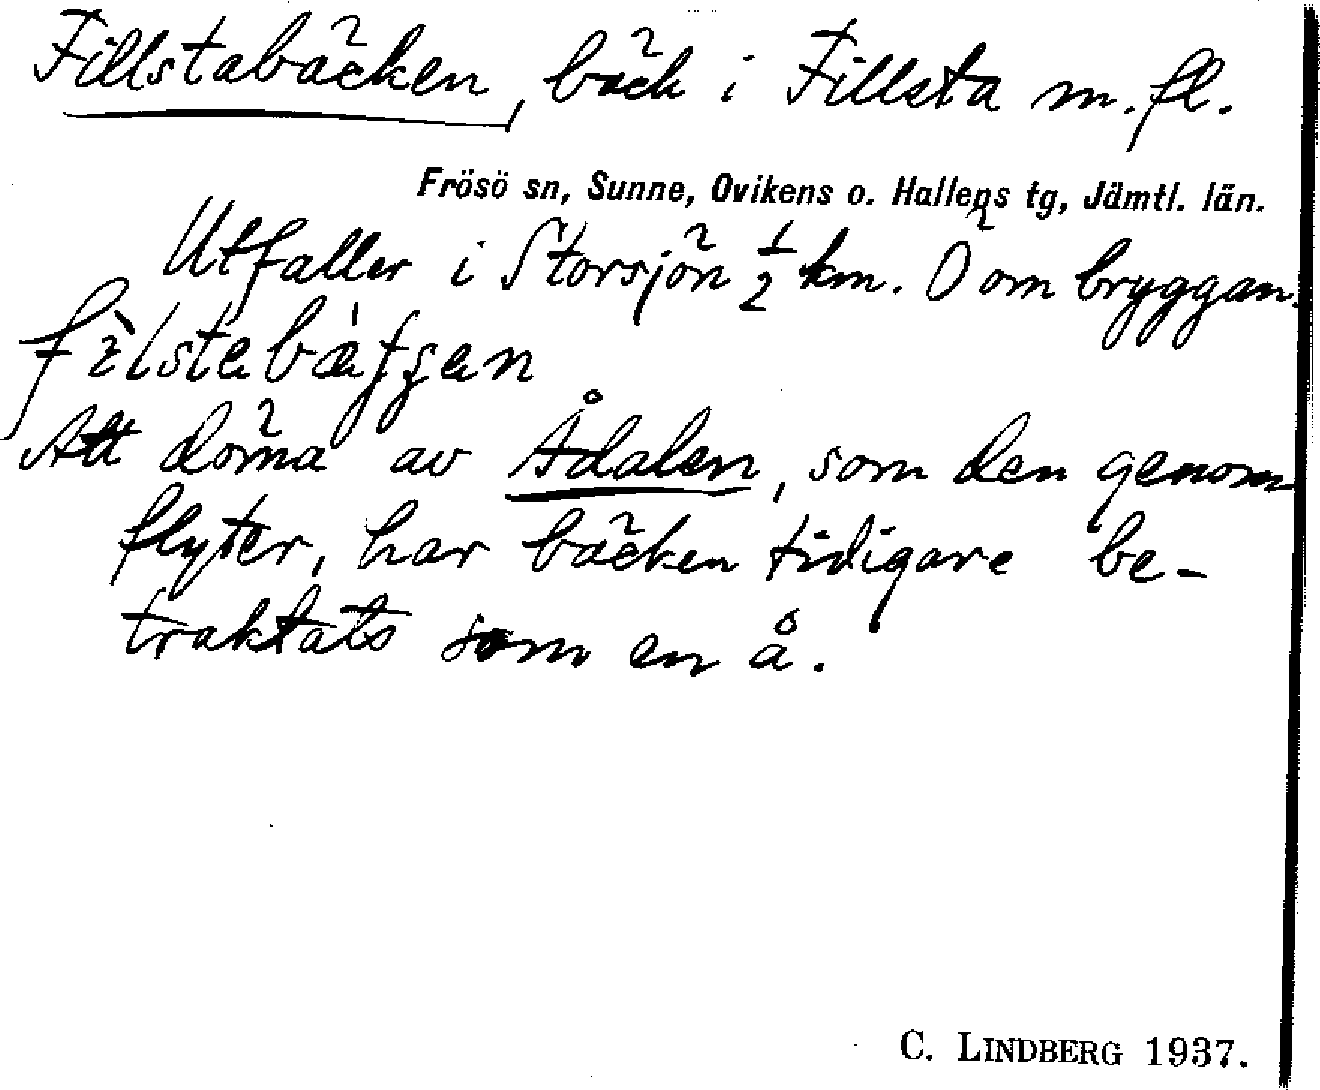 Fillstabäcken, bäck i Fillsta m.fl.
Frösö sn, Sunne, Ovikens o. Hallens tg, Jämtl. län.
Utfaller i Storsjön ½ km. Ö om bryggan.
Att döma av Ådalen, som den genom-
flyter, har bäcken tidigare be-
traktats som en å.
C. LINDBERG 1937.